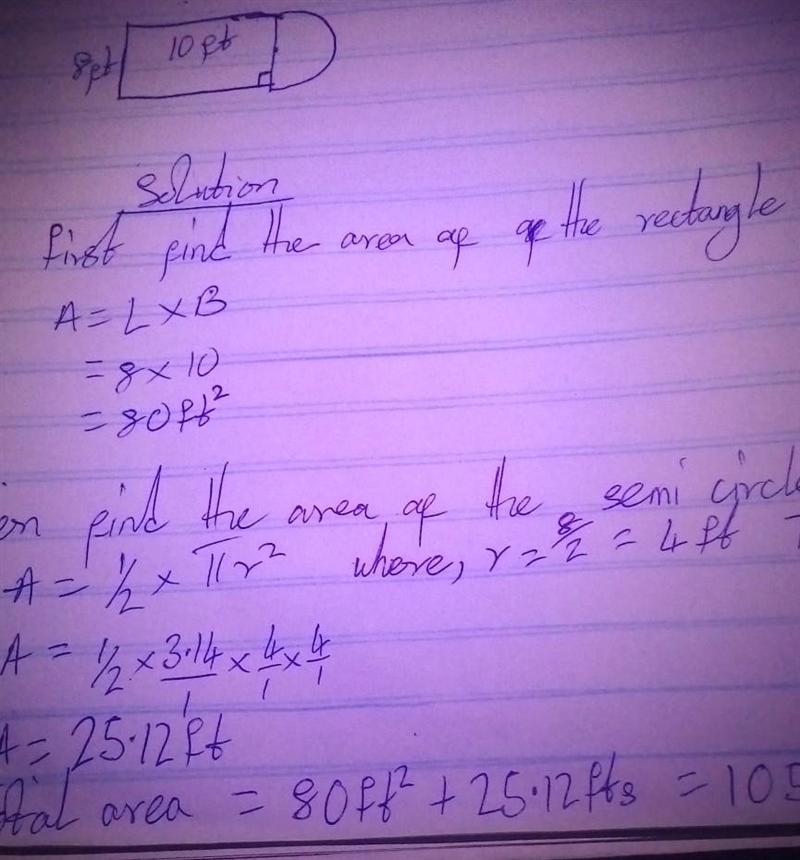 8ft 10ft
Solution
First find the area of of the rectangle
A = L × B
= 8 × 10
= 80ft²
en find the area of the semi circle
A = 1/2 × πr² where, r = 8/2 = 4ft
A = 1/2 × 3.14/1 × 4/1 × 4/1
A = 25.12ft
tal area = 80ft² + 25.12fts = 105